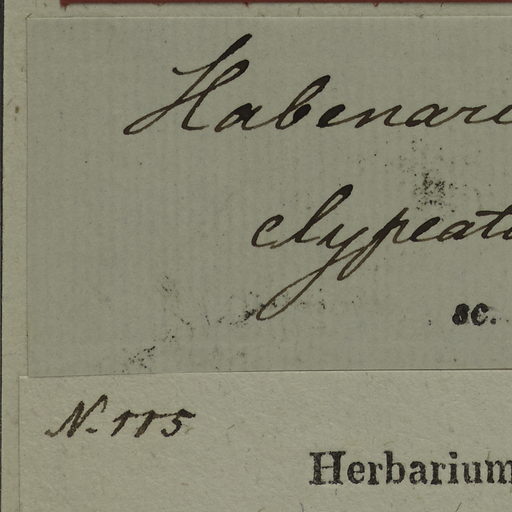 Habenari
clypeat
sc.
N. 115
Herbarium